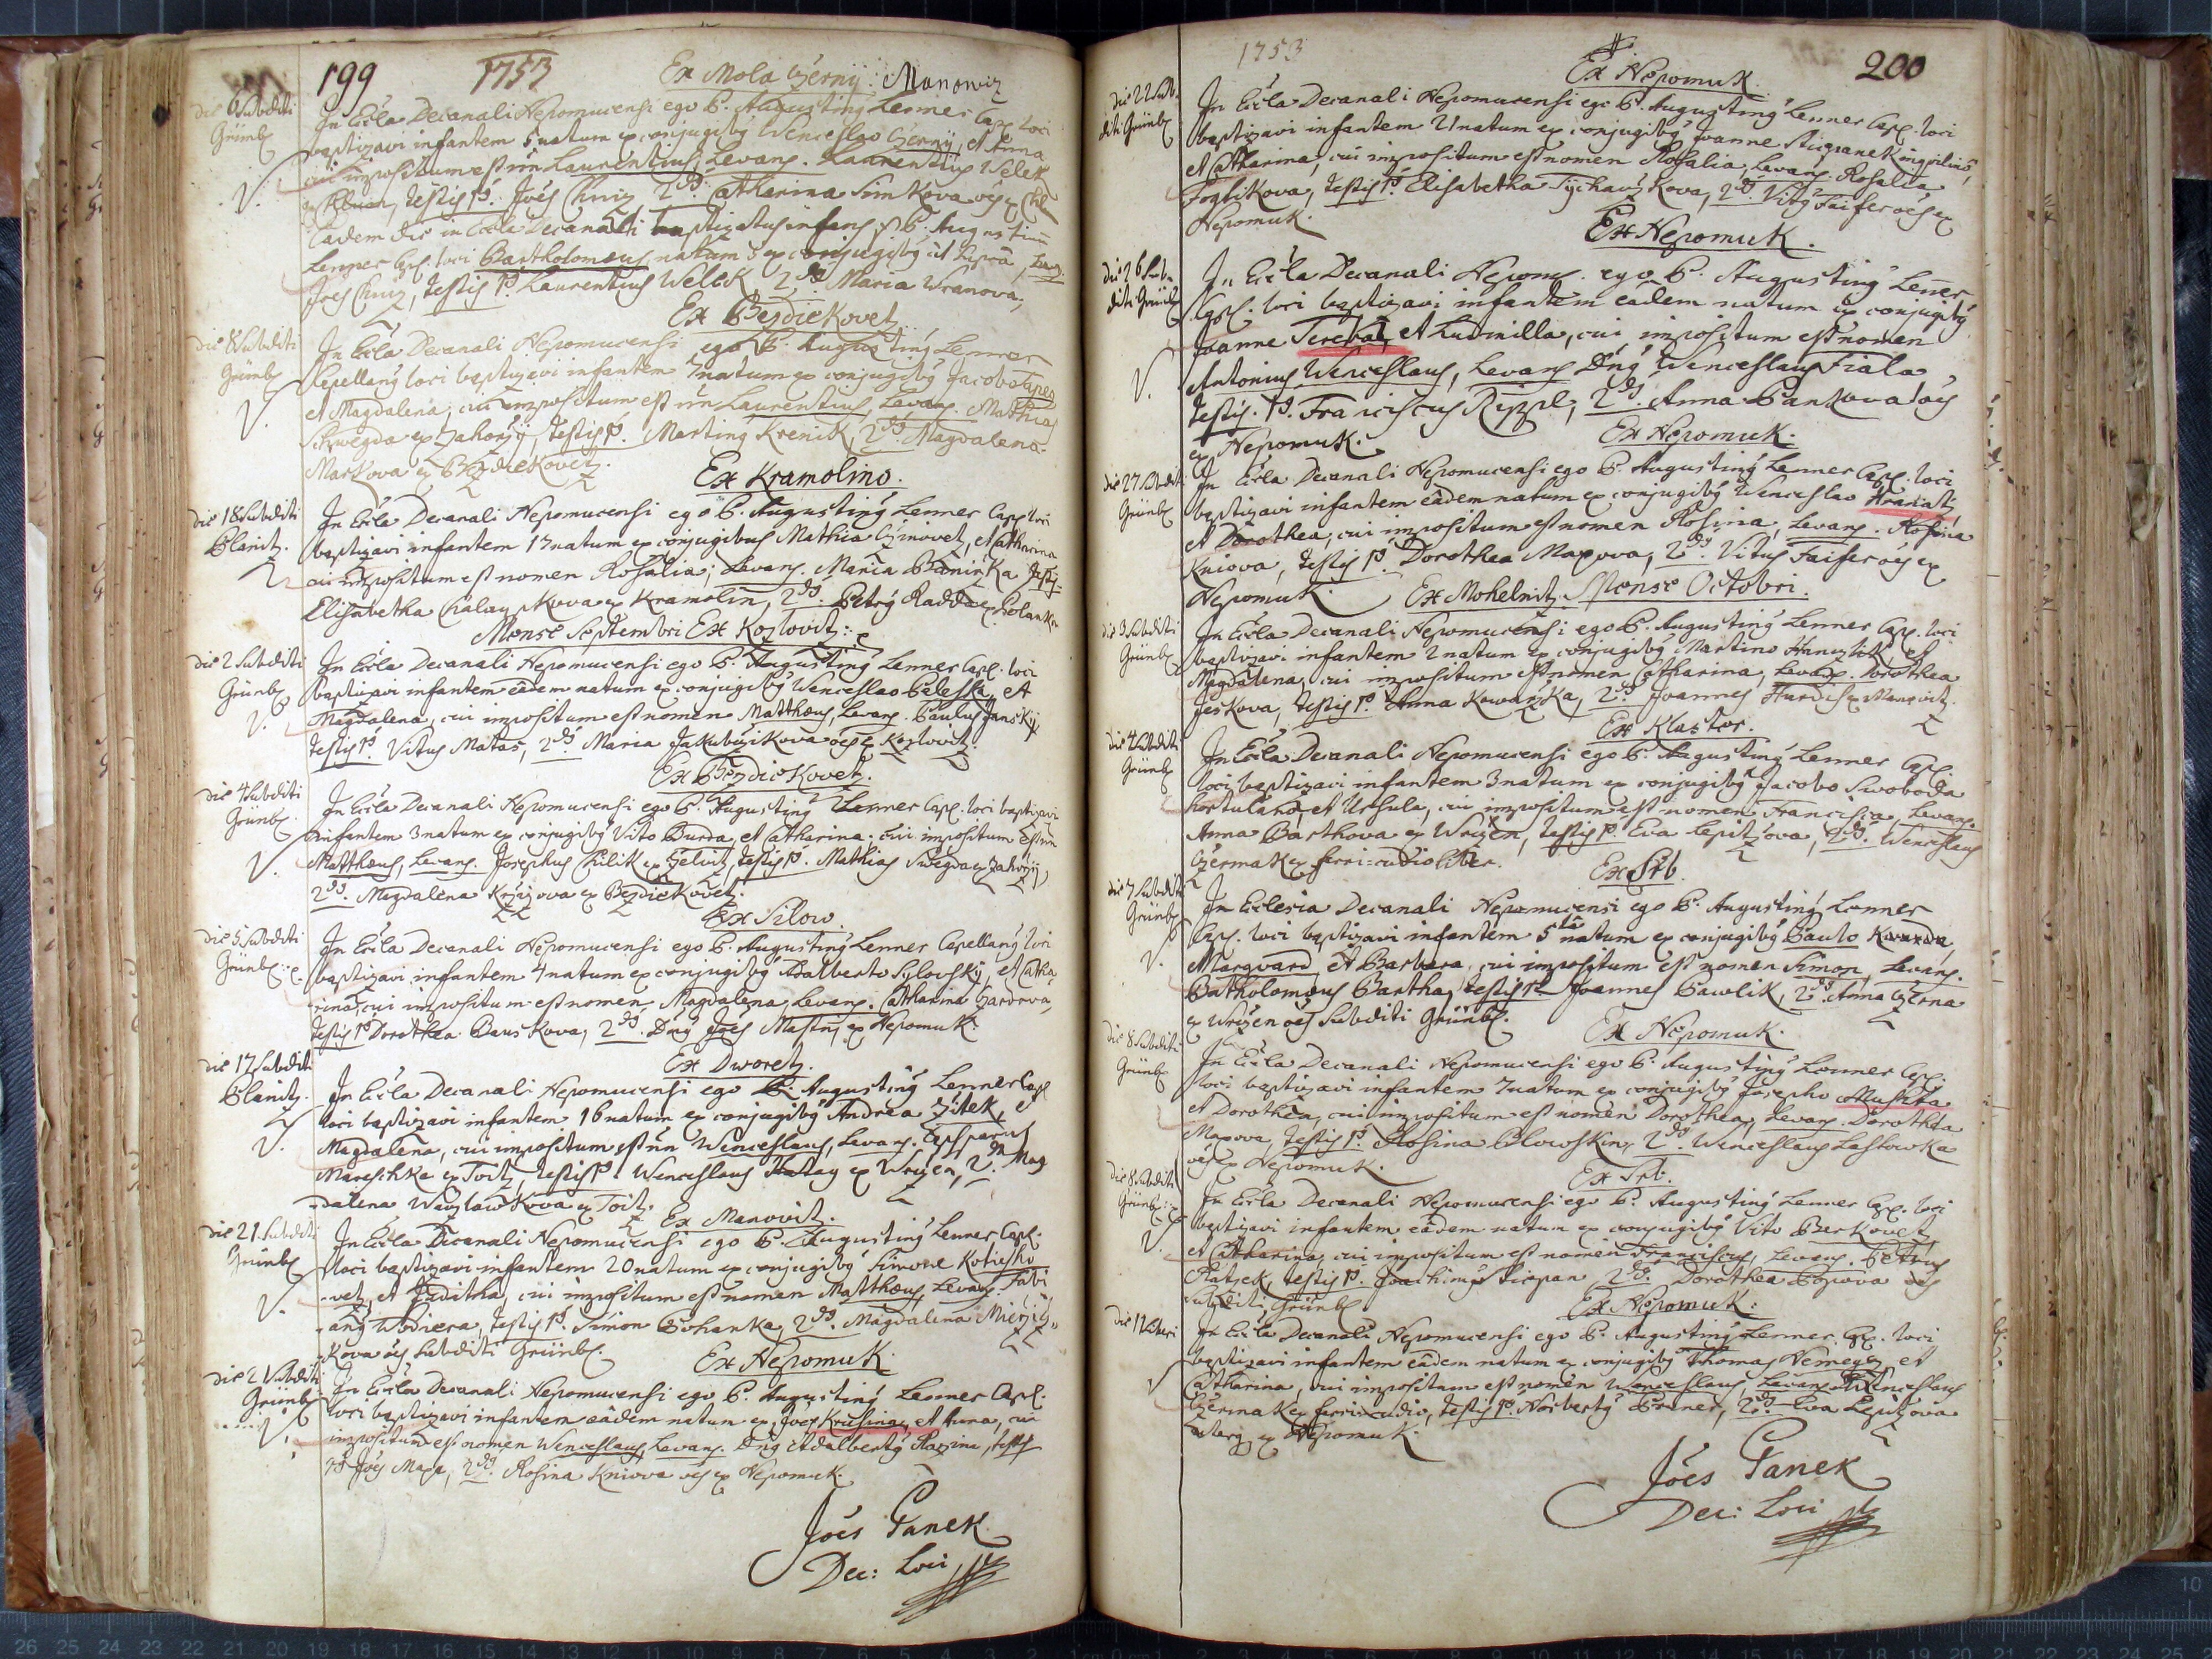 199 1753 Ex Mola Czerny: Manowiz
die 6 Subditi Grünb.
In Eccla Decanali Nepomucensi ego P. Augustinus Lenner Cap. loci
baptizavi infantem 5 natum ex conjugibus Wenceslao Czerny, et Anna
cui impositum est nn Laurentius, Levans. Laurentius Welek
testis 1s. Joes Chniz, 2ds. Catharina Simkova oes ex
Eadem die in Eccla Decanali baptizatus infans P. Augustin
Lenner Cap. loci Bartholomeus natum 5 ex conjugibus ut supra, Levans
Joes Chniz, testis 1s. Laurentius Welek, 2ds Maria Wranova,
Ex Bezdiekovetz
die 8 Subditi Grünb.
In Eccla Decanali Nepomucensi ego P. Augustinus Lenner
Capellanus loci baptizavi infantem 7 natum ex conjugibus Jacobo
et Magdalena, cui impositum est nn Laurentius, Levans. Mathias
Sswegda ex Zahorzy, testis 1s. Martinus Krenik, 2ds Magdalena
Markova ex Bezdiekovetz.
Ex Kramolino.
die 18 Subditi Planitz.
In Eccla Decanali Nepomucensi ego P. Augustinus Lenner Cap. loci
baptizavi infantem 17 natum ex conjugibus Mathia Czinovet, et Catharina
cui impositum est nomen Rosalia, Levans. Maria testis
Elisabetha ex Kramolin, 2ds. Petrus Radda
Mense Septembri Ex Kozlovitz:
die 2 Subditi Grünb.
In Eccla Decanali Nepomucensi ego P. Augustinus Lenner Cap. loci
baptizavi infantem eadem natum ex conjugibus Wenceslao Pelessa, et
Magdalena, cui impositum est nomen Matthaeus, Levans. Paulus Janský,
testis 1s. Vitus Matas, 2ds Maria Jakubczikova oes ex Kozlovitz.
Ex Bezdiekovetz.
die 4 Subditi Grünb.
In Eccla Decanali Nepomucensi ego P. Augustinus Lenner Cap. loci baptizavi
infantem 3 natum ex conjugibus Vito Burda, et Catharina, cui impositum est nn
Matthaeus, Levans. Josephus Chilik, testis 1s. Mathias Swegda ex Zahorzy,
2ds. Magdalena Krzizova ex Bezdiekovetz.
Ex Silow.
die 5 Subditi Grünb.
In Eccla Decanali Nepomucensi ego P. Augustinus Lenner Capellanus loci
baptizavi infantem 4 natum ex conjugibus Adalberto Sylovsky, et Catha
rina, cui impositum est nomen Magdalena, Levans. Catharina
testis 1s Dorothea Bauskova, 2ds. Dnus Joes Mastny ex Nepomuk.
Ex Dworetz.
die 17 Subditi Planitz.
In Eccla Decanali Nepomucensi ego P. Augustinus Lenner Cap.
loci baptizavi infantem 16 natum ex conjugibus Andrea Zitek, et
Magdalena, cui impositum est nn Wenceslaus, Levans.
Mareschka ex Toitz, testis 1s. Wenceslaus ex Wrzen, 2ds Mag
dalena Waczlawkova ex Toitz.
Ex Manovitz.
die 21. Subditi Grünb.
In Eccla Decanali Nepomucensi ego P. Augustinus Lenner Cap.
loci baptizavi infantem 20 natum ex conjugibus Simone Kotiesho
vetz, et Juditha, cui impositum est nomen Matthaeus, Levans. Fabi
anus Wodiera, testis 1s. Simon Bohanka, 2ds. Magdalena
kova oes Subditi Grünb.
Ex Nepomuk
die 21 Subditi Grünb.
In Eccla Decanali Nepomucensi ego P. Augustinus Lenner Cap.
loci baptizavi infantem eadem natum ex Joes Krusina, et Anna, cui
impositum est nomen Wenceslaus, Levans. Dnus Adalbertus Razim, testis
1s Joes Maxa, 2ds. Rosina Kniova oes ex Nepomuk.
Jóes Ganek
Dec: Loci
1753 200
Ex Nepomuk.
die 22 Subditi Grünb.
In Eccla Decanali Nepomucensi ego P. Augustinus Lenner Cap. loci
baptizavi infantem 21 natum ex conjugibus Joanne Stiepanek inquilino,
et Catharina, cui impositum est nomen Rosalia, Levans. Rosalia
Foglikova, testis 1s. Elisabetha Tychawskova, 2ds. Vitus Faifer oes ex
Nepomuk.
Ex Nepomuk.
die 26 Subditi Grünb.
In Eccla Decanali Nepomu. ego P. Augustinus Lenner
Cap. loci baptizavi infantem eadem natum ex conjugibus
Joanne Tereba, et Ludmilla, cui impositum est nomen
Antonius Wenceslaus, Levans Dnus Wenceslaus Fiala,
testis. 1s. Franciscus Rippl, 2ds. Anna Pankova oes
ex Nepomuk.
Ex Nepomuk.
die 27 Subditi Grünb.
In Eccla Decanali Nepomucensi ego P. Augustinus Lenner Cap. loci
baptizavi infantem eadem natum ex conjugibus Wenceslao
et Dorothea, cui impositum est nomen Rosina, Levans. Rosina
Kniova, testis 1s. Dorothea Maxova, 2ds. Vitus Faifer oes ex
Nepomuk.
Ex Mohelnitz Mense Octobri.
die 3 Subditi Grünb.
In Eccla Decanali Nepomucensi ego P. Augustinus Lenner Cap. loci
baptizavi infantem 2 natum ex conjugibus Martino et
Magdalena, cui impositum est nomen Catharina, Levans. Dorothea
Jeskova, testis 1s. Anna Kowarzka, 2ds Joannes ex Manovitz.
Ex Klaster.
die 4 Subditi Grünb.
In Eccla Decanali Nepomucensi ego P. Augustinus Lenner Cap.
loci baptizavi infantem 3 natum ex conjugibus Jacobo Swoboda
hortulano, et Ursula, cui impositum est nomen Francisca, Levans.
Anna Barthova ex Wrzen, testis 1s. Eva Lepitzova, 2ds. Wenceslaus
Czermak ex ferricudio liber.
Ex Srb.
die 7 Subditi Grünb.
In Eclesia Decanali Nepomucensi ego P. Augustinus Lenner
Cap. loci baptizavi infantem 5ta natum ex conjugibus Paulo
Marqvard, et Barbara, cui impositum est nomen Simon, Levans.
Batholomaeus Bartha, testis 1s Joannes Pawlik, 2ds Anna Czerna
ex Wrzen oes Subditi Grünb.
Ex Nepomuk.
die 8 Subditi Grünb.
In Eccla Decanali Nepomucensi ego P. Augustinus Lenner Cap.
loci baptizavi infantem 7 natum ex conjugibus Josepho
et Dorothea, cui impositum est nomen Dorothea, Levans. Dorothea
Maxova, testis 1s. Rosina 2ds. Wenceslaus Laslowka
oes ex Nepomuk.
Ex Srb.
die 8 Subditi Grünb.
In Eccla Decanali Nepomucensi ego P. Augustinus Lenner Cap. loci
baptizavi infantem eadem natum ex conjugibus Vito Berkovetz
et Catharina, cui impositum est nomen Franciscus, Levans. Petrus
testis 1s. Joachimus Stiepan 2ds. Dorothea oes
Subditi Grünb.
Ex Nepomuk:
die 11 Liberi
In Eccla Decanali Nepomucensi ego P. Augustinus Lenner Cap. loci
baptizavi infantem eadem natum ex conjugibus Thomas Nemegz, et
Catharina, cui impositum est nomen Wenceslaus, Levans Wenceslaus
Czermak ex ferricudio, testis 1s. Norbertus Praner, 2ds. Eva Lepitzova
ex Nepomuk.
Jóes Ganek
Dec: Loci